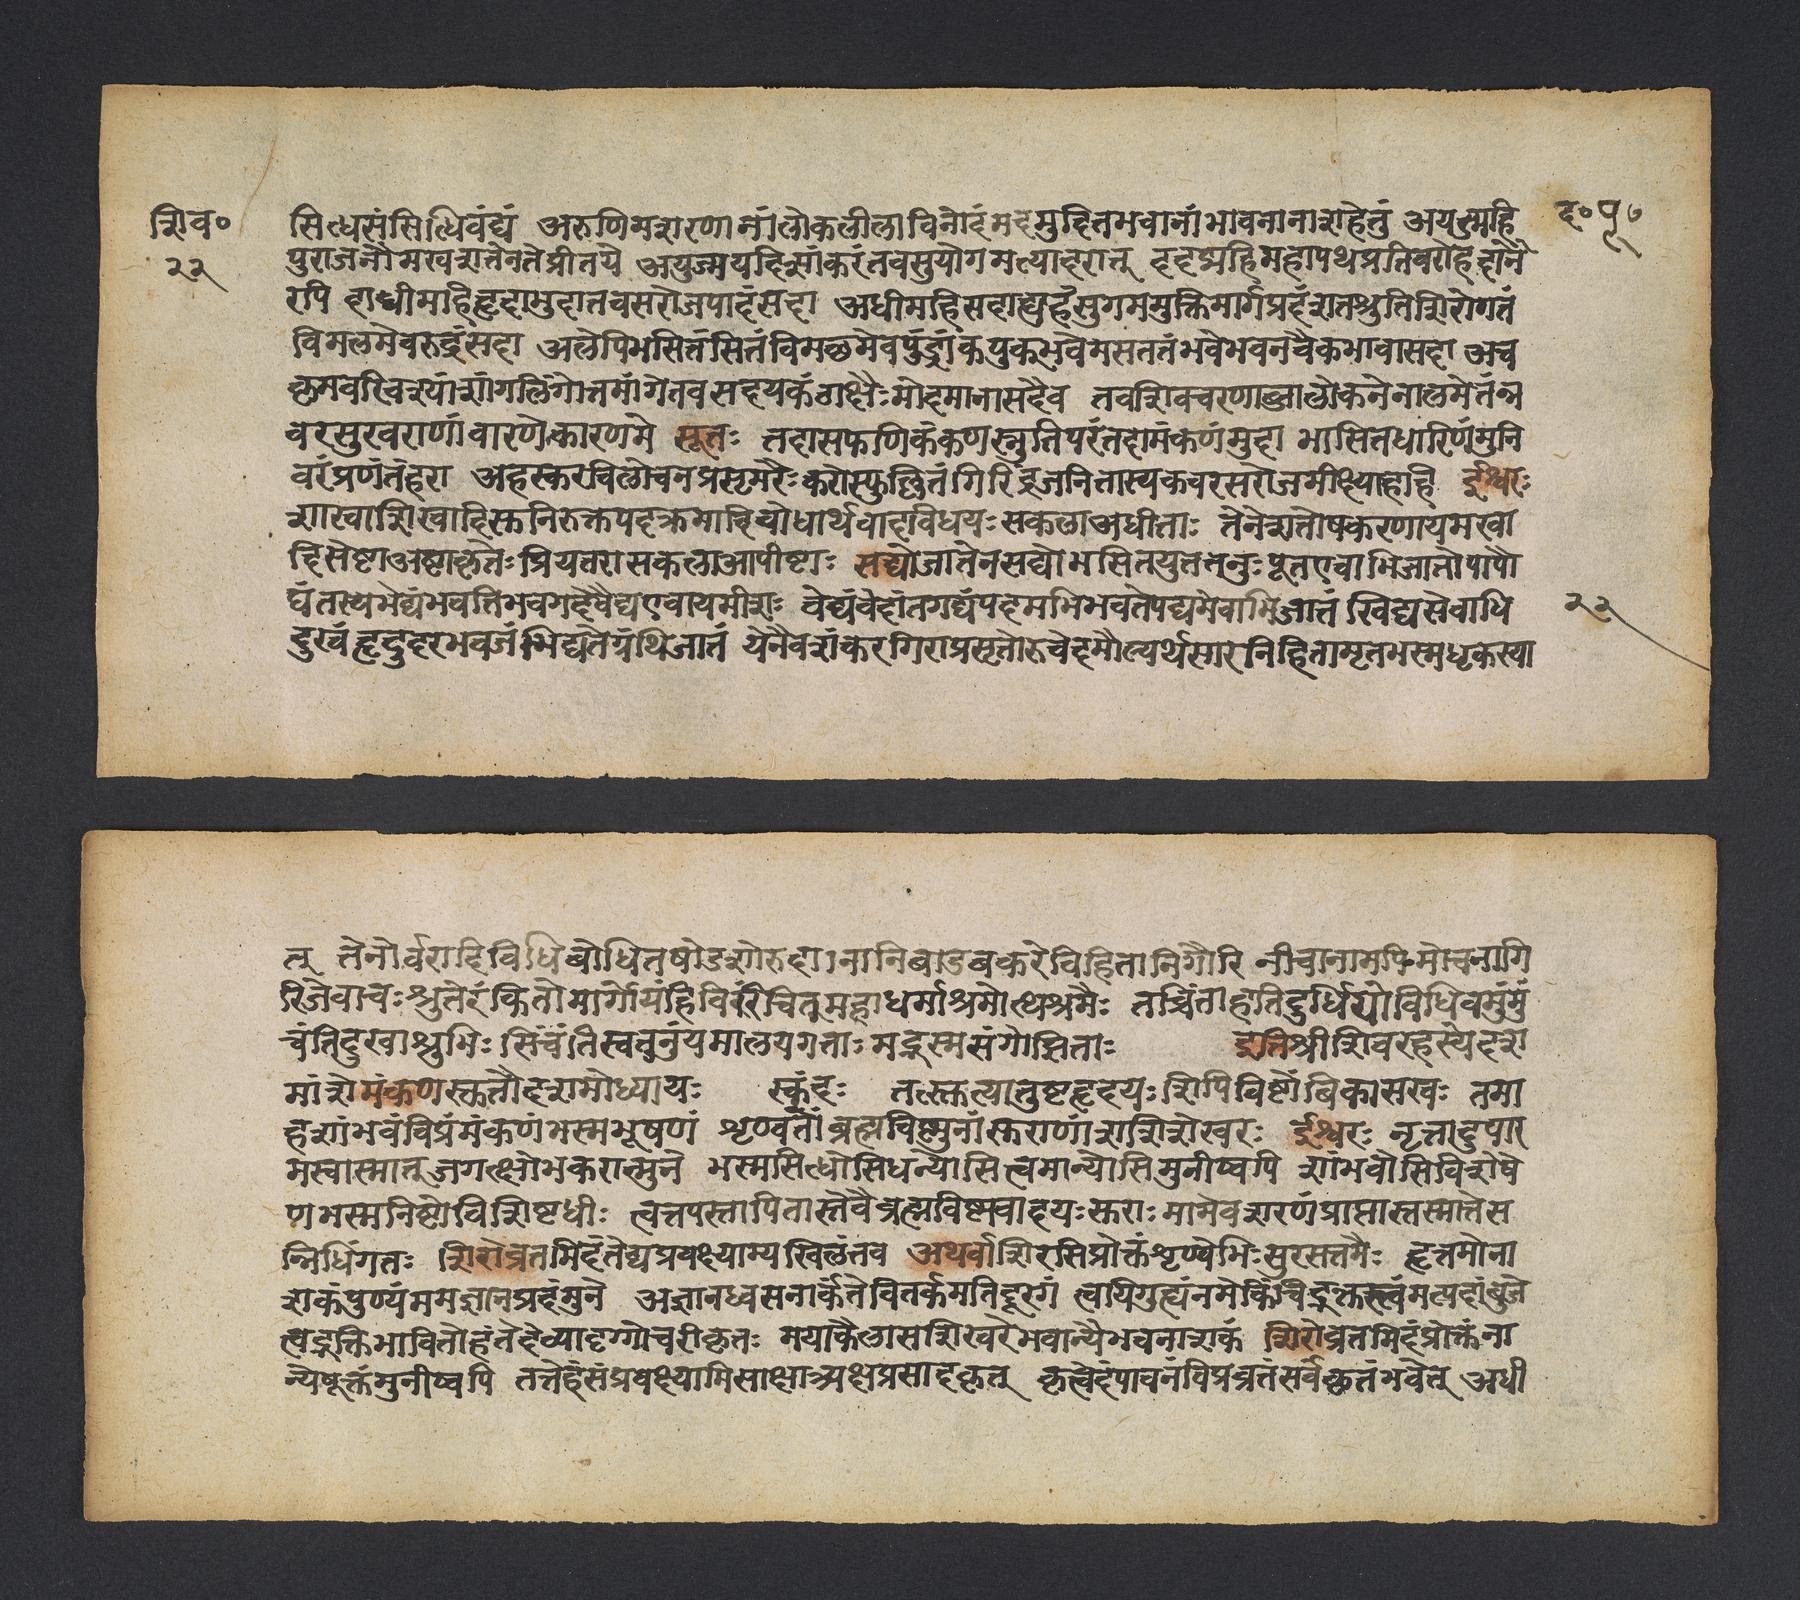 शिव॰
२२
द॰ ५७
सिध्धसंसिध्धिवंद्यं अरुणिमशरणानांलोकलीलाविनोदंमहमुदितभवानांभावनानाशहेतुं अयत्महि
पुराजनौमखशतेनतेप्रीतये अयुज्मयदिसांकरंतवसुयोगमत्यादरात् हृदद्महिमहापथप्रतिवरोहेदानै
रपि दाधीमहिहृदामुदातवसरोजपादंसदा अधीमहिसदाद्यदंसुगममुक्तिमार्गप्रदंशतश्रुतिशिरोगतं
विमलमेवरुद्रंसदा अलेपिभसितंसितंविमलमेवपुंड्रांकयुकभवेमसततंभवेभवनवैकभावासदा अच
लमवरिवश्यांशांगलिंगोत्तमांगेतवसदयकंठाक्षैःमोदमानासदैव तवशिवचरणाब्जालोकनेनालमेतंन्म
वरसुखराणांवारणेकारणमे सूतः तदासफणिकंकणस्तुतिपरंतदामंकणंमुदा भासितधारिणंमुनि
वरंप्रणतंहरा अहस्करविलोचनप्रसृमरैःकरोस्फुल्लितंगिरिंद्रजनितास्यकवरसरोजमीक्ष्याहहि ईश्वरः
शाखाशिखादिस्तनिरुक्तपदक्रमादिवोधार्थवादविधयःसकलाअधीताः तेनेशतोषकरणायमखा
दिसेष्टाअष्टाकृतेःप्रियतरासकलाआपीष्टाः सद्योजातेनसद्योभसितयुततनुःपूतएवाभिजातोपापौ
घंतस्यभेद्यंभवतिभवगदेवैद्यएवायमीशः वेद्यंवेदांतगद्यंपदमभिभवतेपद्यमेवाभिजातं खिद्यसेवाधि
दुखंहृदुदरभवजंभिद्यतेग्रंथिजातं येनैवशंकरगिराप्रसृतोरुवेदमौल्यर्थसारनिहितामृतभस्मधृकस्या
२२
त् तेनोर्वरादिविधिबोधितषोडशोरुदानानिबाडबकरेविहितानिगौरि नीचानामपिमोचनागि
रिजेवाचःश्रुतेरंकितोमार्गोयंहिविरिंचितुमहाधर्माश्रमोत्थश्रमैः तच्चिंतादतिदुर्धियोविधिवमुंमुं
चंतिदुखाश्रुभिः सिंचंतिस्वतनुंयमालयगताःमद्भस्मसंगोझिताः इतिश्रीशिवरहस्येदश
मांशेमंकणस्ततौदशमोध्यायः स्कंदः तत्स्तत्यातुष्टहृदयःशिपिविष्टोंबिकासखः तमा
हशांभवंविप्रंमंकणंभस्मभूषणं शृण्वतांब्रह्मविष्णुनांस्तराणांशशिशेखरः ईश्वरः नृत्तादुपार
मस्वास्मात्जगत्क्षोभकरात्मुने भस्मसिध्धोसिधन्योसित्वमान्योसिमुनीष्वपि शांभवोसिविशेषे
णभस्मनिष्टोविशिष्टधीः त्वत्तपस्तापितास्तेवैब्रह्मविष्णवादयःस्तराःमामेवशरणंप्राप्तास्तस्मात्तेस
न्निधिंगतः शिरोव्रतमिदंतेद्यप्रवक्ष्याम्यखिलंतव अथर्वशिरसिप्रोक्तंशृण्वेभिःसुरसत्तमैः हृत्तमोना
शकंपुण्यंममज्ञानप्रदंमुने अज्ञानध्वसनार्कंतेवितर्कमतिदूरगं त्वयिगुह्यंनमेकिंचिद्भक्तस्त्वंमत्पदांबुजे
त्वद्भक्तिभावितोहंतेदेव्यादृग्गोचरीकृतः मयाकैलासशिखरेभवान्यैभवनाशकं शिरोव्रतमिदंप्रोक्तंना
न्येषूक्तंमुनीष्वपि तत्तेहंसंप्रवक्ष्यामिसाक्षात्र्यक्षप्रसादकृत् कृत्वेदंपावनंविप्रव्रतंसर्वकृतंभवेत् अधी